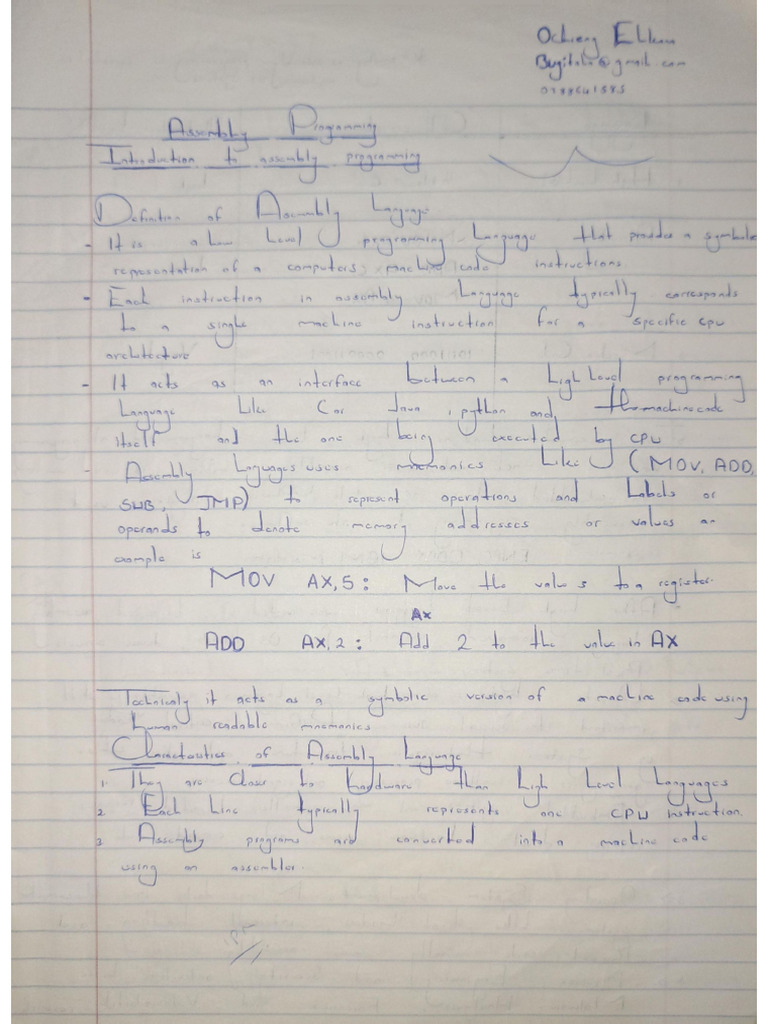 Ochieng Elkana
Bugitala@gmail.com
Assembly Programming
Introduction to assembly programming
Definition of Assembly Language
- It is a Low Level programming Language that provides a symbolic
representation of a computers, machine code instructions.
- Each instruction in assembly Language typically corresponds
to a single machine instruction for a specific cpu
architecture
- It acts as an interface between a High Level programming
Language Like C or Java, python and, the machine code
itself and the one being executed by CPU
- Assembly Languages uses mnemonics Like (MOV, ADD,
SUB, JMP) to represent operations and Labels or
operands to denote memory addresses or values an
example is
MOV AX, 5 : Move the value 5 to a register
AX
ADD AX, 2 : Add 2 to the value in AX
Technically it acts as a symbolic version of a machine code using
human readable mnemonics
Charactaristics of Assembly Language
1. They are Closer to Hardware than High Level Languages
2. Each Line typically represents one CPU instruction.
3. Assembly programs are converted into a machine code
using an assembler.